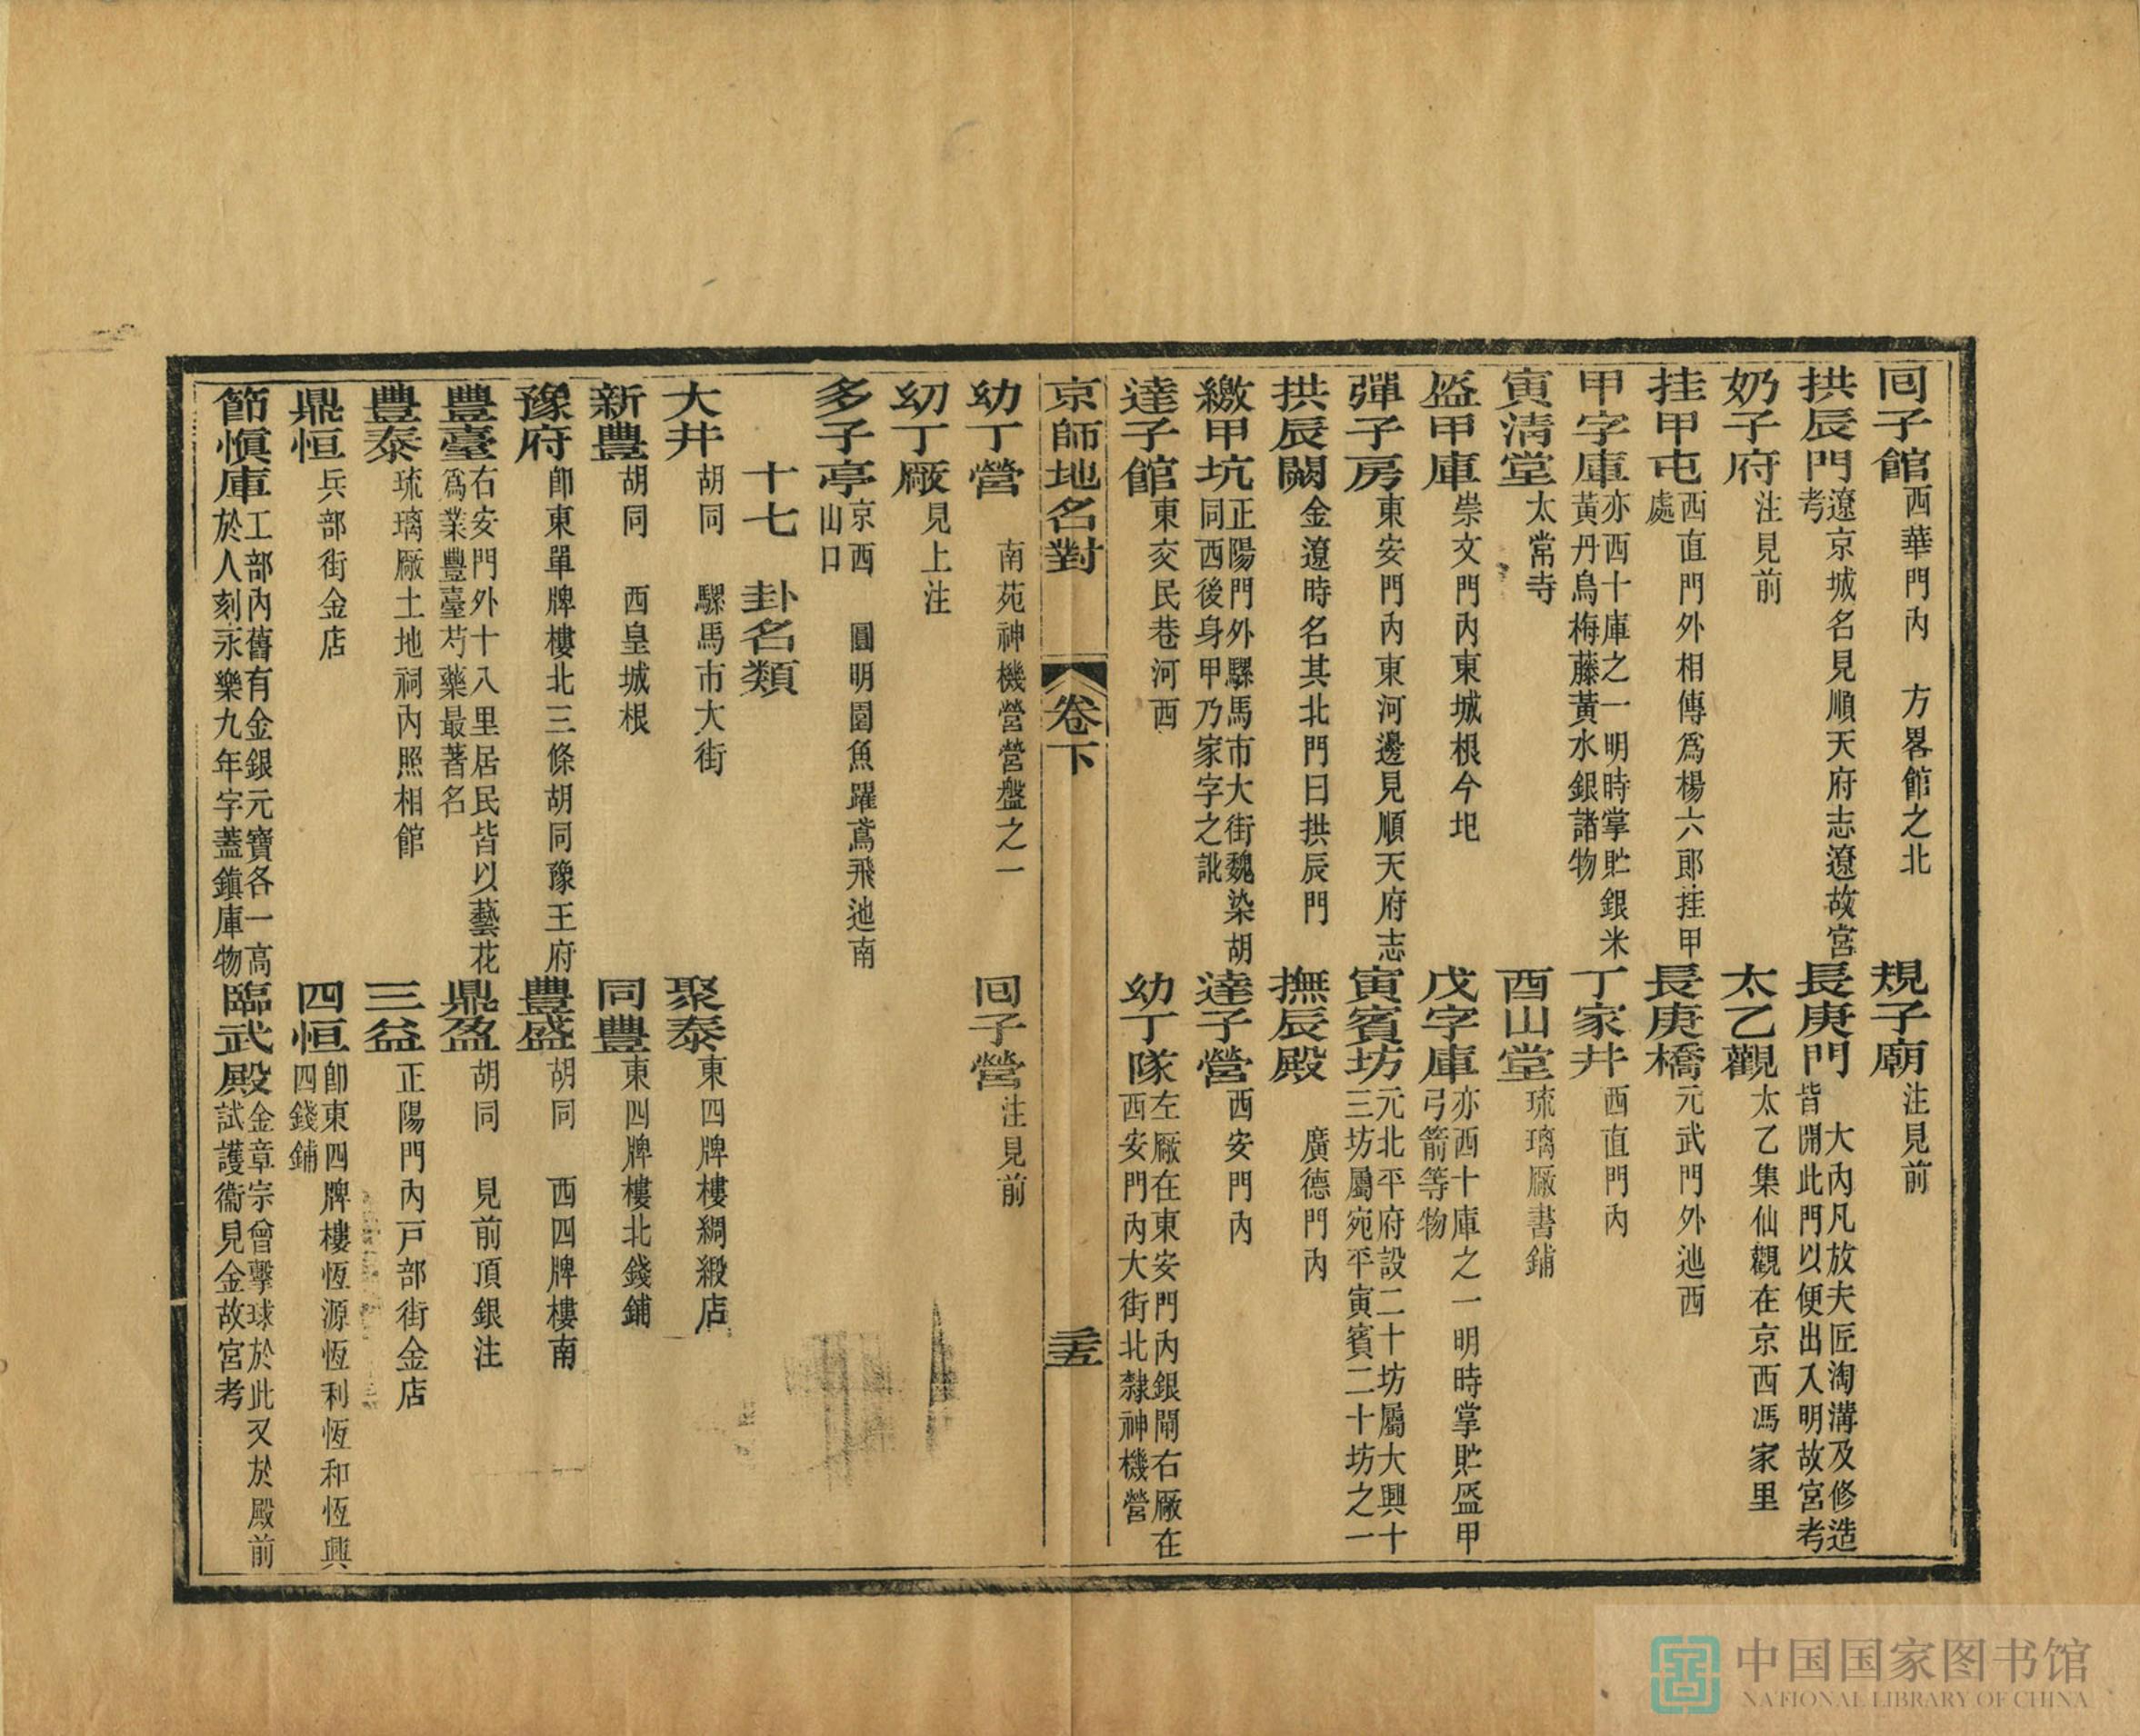 囘子館西華門內　方畧館之北　規子廟注見前
拱辰門遼京城名見順天府志遼故宮考　長庚門　大內凡放夫匠淘溝及修造皆開此門以便出入明故宮考
奶子府注見前　太乙觀太乙集仙觀在京西馮家里
挂甲屯西直門外相傳爲楊六郎挂甲處　長庚橋元武門外迆西
甲字庫亦西十庫之一明時掌貯銀米黃丹烏梅藤黃水銀諸物　丁家井西直門內
寅淸堂太常寺　酉山堂琉璃厰書鋪
盔甲庫崇文門內東城根今圯　戊字庫亦西十庫之一明時掌貯盔甲弓箭等物
彈子房東安門內東河邊見順天府志　寅賓坊元北平府設二十坊屬大興十三坊屬宛平寅賓二十坊之一
拱辰闕金遼時名其北門曰拱辰門　撫辰殿　廣德門內
繳甲坑正陽門外騾馬市大街魏染胡同西後身甲乃家字之訛　達子營西安門內
達子館東交民巷河西　幼丁隊左厰在東安門內銀閘右厰在西安門內大街北隸神機營
京師地名對　卷下　三五
幼丁營　南苑神機營營盤之一　囘子營注見前
幼丁厰見上注
多子亭京西　圓明園魚躍鳶飛迆南山口
十七　卦名類
大井胡同　騾馬市大街　聚泰東四牌樓綢緞店
新豐胡同　西皇城根　同豐東四牌樓北錢鋪
豫府卽東單牌樓北三條胡同豫王府　豐盛胡同　西四牌樓南
豐臺右安門外十八里居民皆以藝花爲業豐臺芍藥最著名　鼎盈胡同　見前頂銀注
豐泰琉璃厰土地祠內照相館　三益正陽門內戶部街金店
鼎恒兵部街金店　四恒卽東四牌樓恆源恆利恆和恆興四錢鋪
節愼庫工部內舊有金銀元寶各一高於人刻永樂九年字蓋鎭庫物　臨武殿金章宗曾擊球於此又於殿前試護衞見金故宮考
中国国家图书馆
NATIONAL LIBRARY OF CHINA